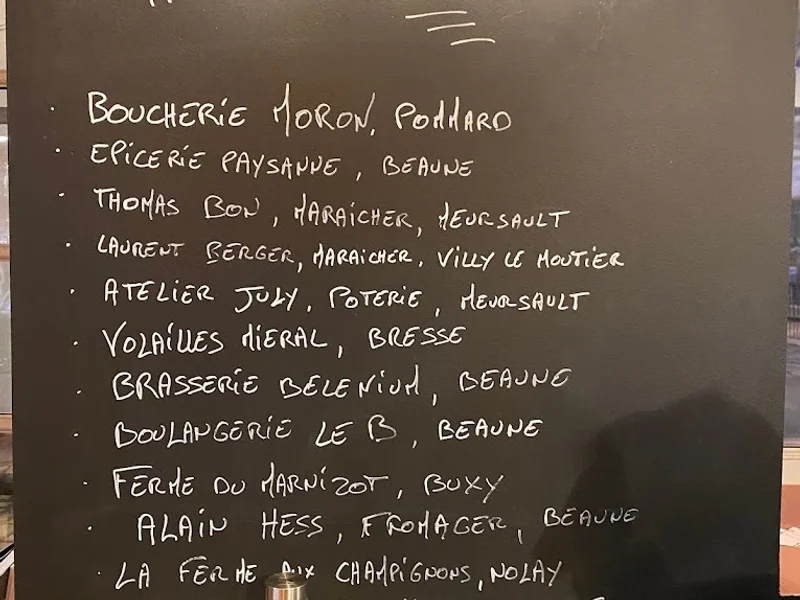 · BOUCHERIE MORON, POMMARD
· EPICERIE PAYSANNE, BEAUNE
· THOMAS BON, MARAICHER, MEURSAULT
· LAURENT BERGER, MARAICHER, VILLY LE MOUTIER
· ATELIER JULY, POTERIE, MEURSAULT
· VOLAILLES MIERAL, BRESSE
· BRASSERIE BELENIUM, BEAUNE
· BOULANGERIE LE B, BEAUNE
· FERME DU MARNIZOT, BUXY
· ALAIN HESS, FROMAGER, BEAUNE
· LA FERME AUX CHAMPIGNONS, NOLAY